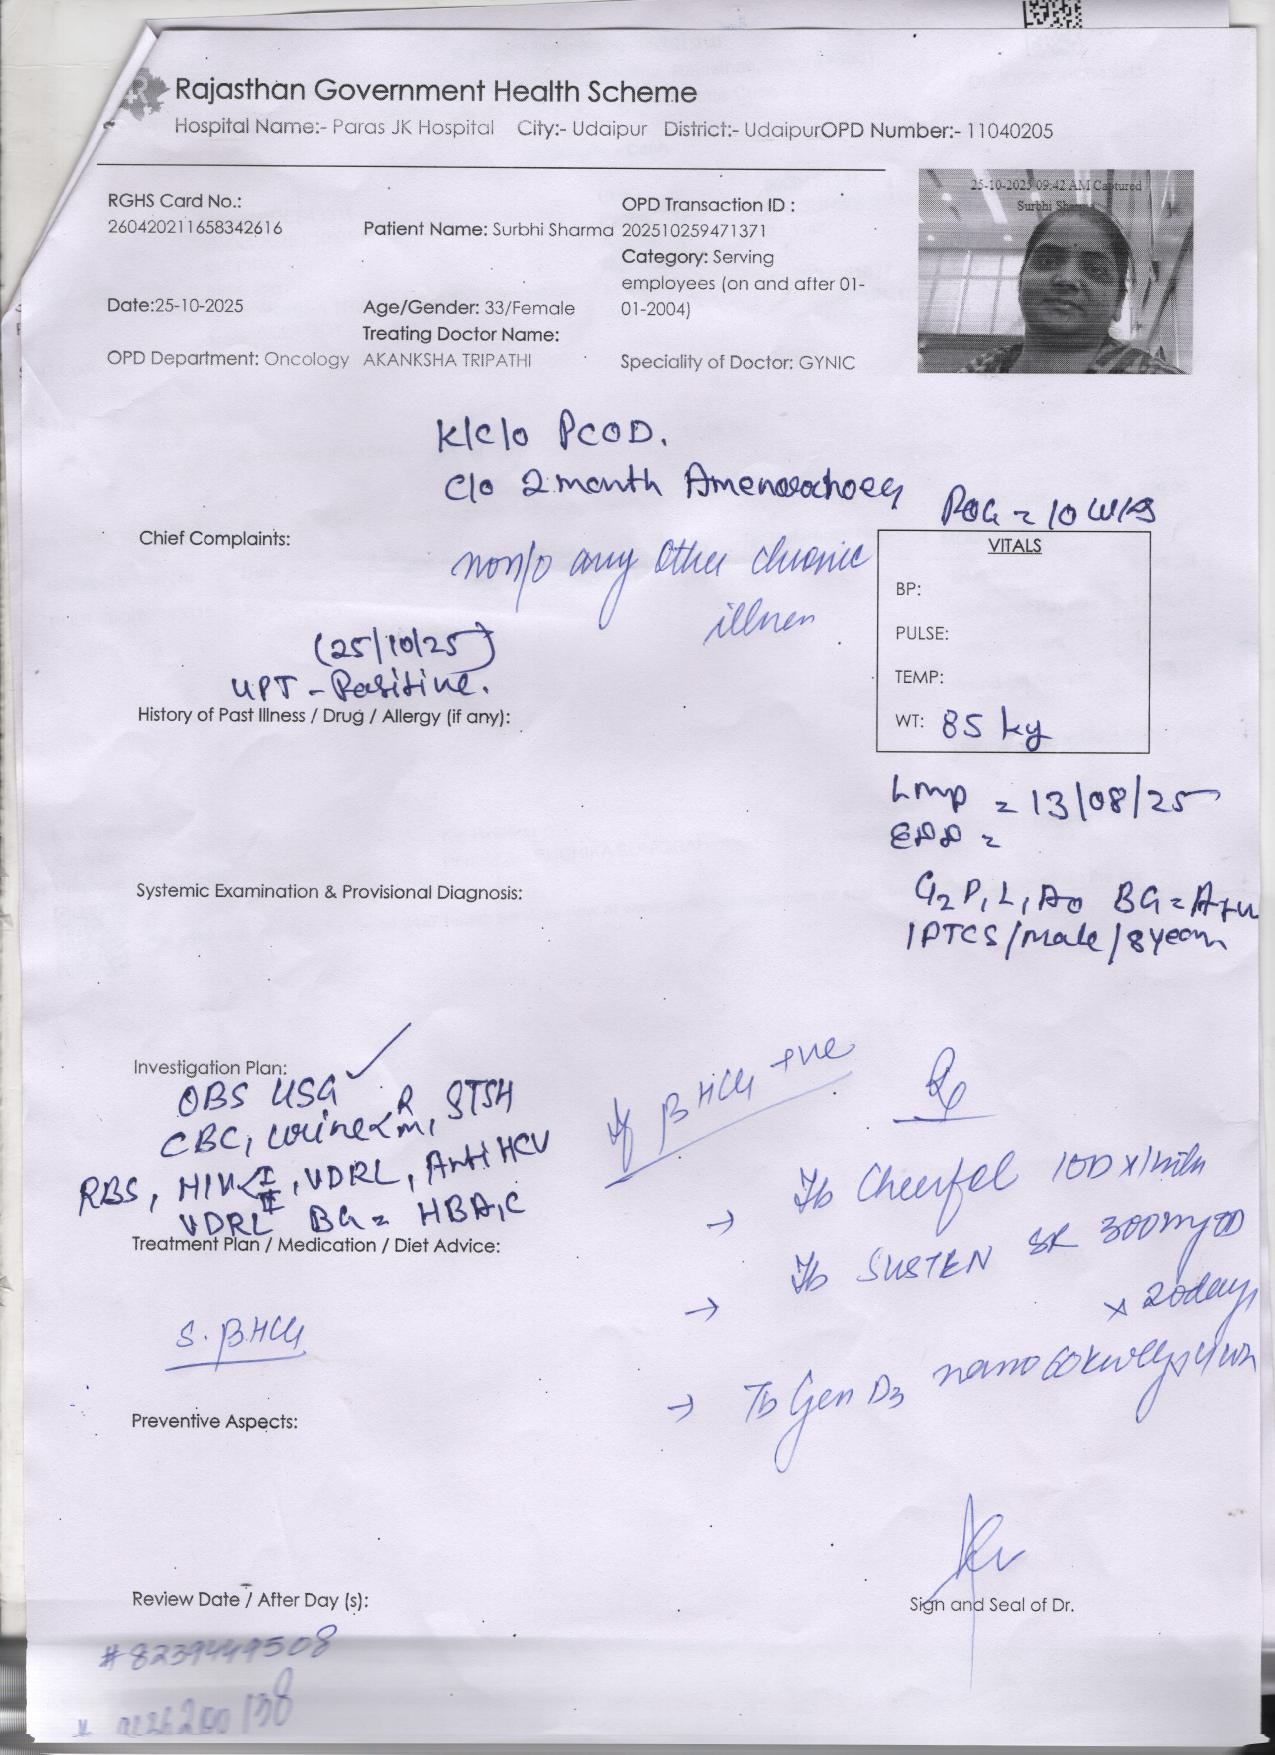 Rajasthan Government Health Scheme
Hospital Name:- Paras JK Hospital City:- Udaipur District:- UdaipurOPD Number:- 11040205
25-10-2025 09:42 AM Captured
Surbhi Sharma
RGHS Card No.:
260420211658342616
Patient Name: Surbhi Sharma
OPD Transaction ID :
202510259471371
Category: Serving
employees (on and after 01-
01-2004)
Date:25-10-2025
Age/Gender: 33/Female
Treating Doctor Name:
OPD Department: Oncology AKANKSHA TRIPATHI Speciality of Doctor: GYNIC
K/C/O PCOD.
C/o 2 month Amenorrhoea
POG = 10 Wks
Chief Complaints:
no h/o any other chronic
illness
VITALS
BP:
PULSE:
TEMP:
WT: 85 kg
(25/10/25)
UPT - Positive.
History of Past Illness / Drug / Allergy (if any):
Lmp = 13/08/25
EDD =
Systemic Examination & Provisional Diagnosis:
G2P1L1A0 BG = A+ve
1PTCS/male/8 years
Investigation Plan:
OBS USG
CBC, urine R M, STSH
RBS, HIV I II, VDRL, Anti HCV
VDRL BG = HBA1C
If β HCG +ve
Rx
Tb Cheerfol 1OD x 1 mth
→ Tb SUSTEN SR 300mg OD
x 20days
→
→ Tb Gen D3 nano 60k wkly x 4 wk
Treatment Plan / Medication / Diet Advice:
S. β HCG
Preventive Aspects:
Review Date / After Day (s):
Sign and Seal of Dr.
#8239449508